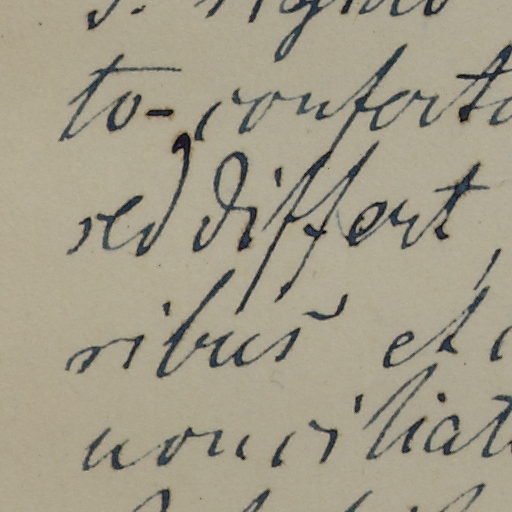 to-conforto
sed differt,
ribus et
non ciliat